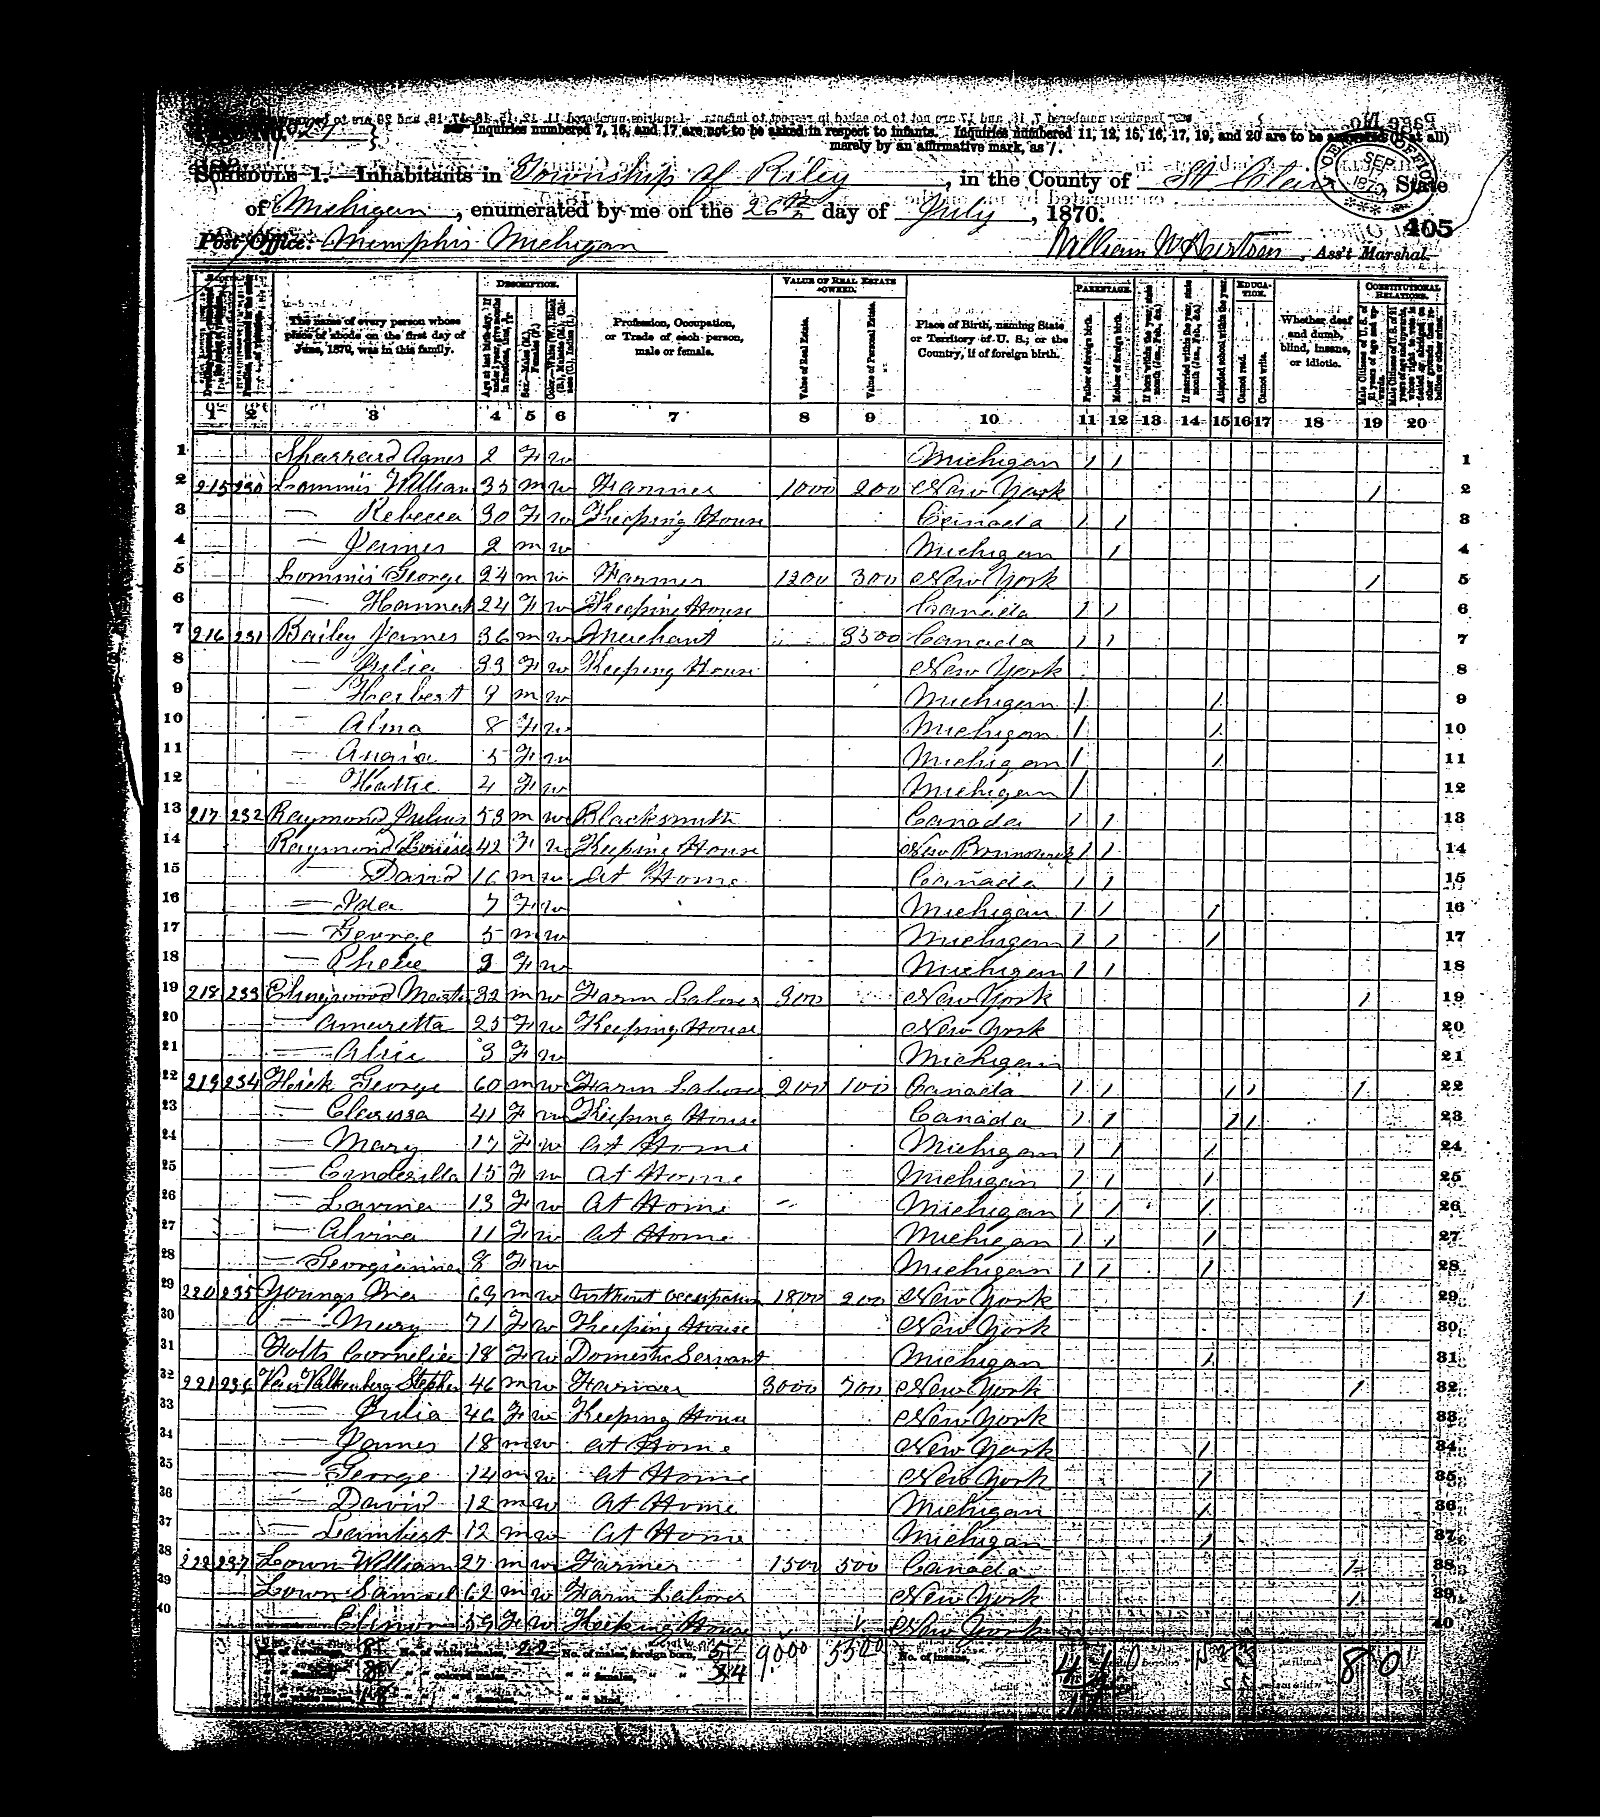 Inquiries numbered 7, 16, and 17 are not to be asked in respect to infants. Inquiries numbered 11, 12, 15, 16, 17, 19, and 20 are to be answered (if at all)
merely by an affirmative mark, as /.
SCHEDULE 1.—Inhabitants in Township of Riley, in the County of St Clair, State
of Michigan, enumerated by me on the 26th day of July, 1870.
405
Post Office: Memphis Michigan
William W Hartson, Ass't Marshal.
DESCRIPTION. VALUE OF REAL ESTATE OWNED. PARENTAGE. EDUCATION. CONSTITUTIONAL RELATIONS.
The name of every person whose place of abode on the first day of June, 1870, was in this family. Profession, Occupation, or Trade of each person, male or female. Value of Real Estate. Value of Personal Estate. Place of Birth, naming State or Territory of U. S.; or the Country, if of foreign birth. Father of foreign birth. Mother of foreign birth. Attended school within the year. Cannot read. Cannot write. Whether deaf and dumb, blind, insane, or idiotic.
1 2 3 4 5 6 7 8 9 10 11 12 13 14 15 16 17 18 19 20
1 Sharrard Agnes 2 F w Michigan / / 1
2 215 230 Lommis William 35 m w Farmer 1000 200 New York / 2
3 — Rebecca 30 F w Keeping House Canada / / 3
4 — James 2 m w Michigan / 4
5 Lommis George 24 m w Farmer 1200 300 New York / 5
6 — Hannah 24 F w Keeping House Canada / / 6
7 216 231 Bailey James 36 m w Merchant 3500 Canada / / 7
8 — Julia 33 F w Keeping House New York 8
9 — Herbert 9 m w Michigan / / 9
10 — Alma 8 F w Michigan / / 10
11 — Angia 5 F w Michigan / / 11
12 — Hattie 4 F w Michigan / 12
13 217 232 Raymond Julius 53 m w Blacksmith Canada / / 13
14 Raymond Louisa 42 F w Keeping House New Brunswick / / 14
15 — David 16 m w At Home Canada / / 15
16 — Ida 7 F w Michigan / / / 16
17 — George 5 m w Michigan / / / 17
18 — Phebe 3 F w Michigan / / 18
19 218 233 32 m w Farm Laborer 300 New York / 19
20 — Amaretta 25 F w Keeping House New York 20
21 — Alice 3 F w Michigan 21
22 219 234 Hick George 60 m w Farm Laborer 200 100 Canada / / / / / 22
23 — Clarissa 41 F w Keeping House Canada / / / / 23
24 — Mary 17 F w At Home Michigan / / / 24
25 — Canderilla 15 F w At Home Michigan / / / 25
26 — Lavina 13 F w At Home Michigan / / / 26
27 — Alvina 11 F w At Home Michigan / / / 27
28 — Georgianna 8 F w Michigan / / / 28
29 220 235 Youngs Ira 69 m w Without occupation 1800 200 New York / 29
30 — Mary 71 F w Keeping House New York 30
31 Folts Cornelia 18 F w Domestic Servant Michigan / 31
32 221 236 Van Valkenberg Stephen 46 m w Farmer 3000 700 New York / 32
33 — Julia 46 F w Keeping House New York 33
34 — James 18 m w At Home New York / 34
35 — George 14 m w At Home New York / 35
36 — David 12 m w At Home Michigan / 36
37 — Lambert 12 m w At Home Michigan / 37
38 222 237 Lown William 27 m w Farmer 1500 500 Canada / 38
39 Lown Samuel 62 m w Farm Laborer New York / 39
40 — Elenor 59 F w Keeping House New York 40
No. of dwellings, 8 No. of white females, 22 No. of males, foreign born, 5 9000 5500 No. of insane, 8 0